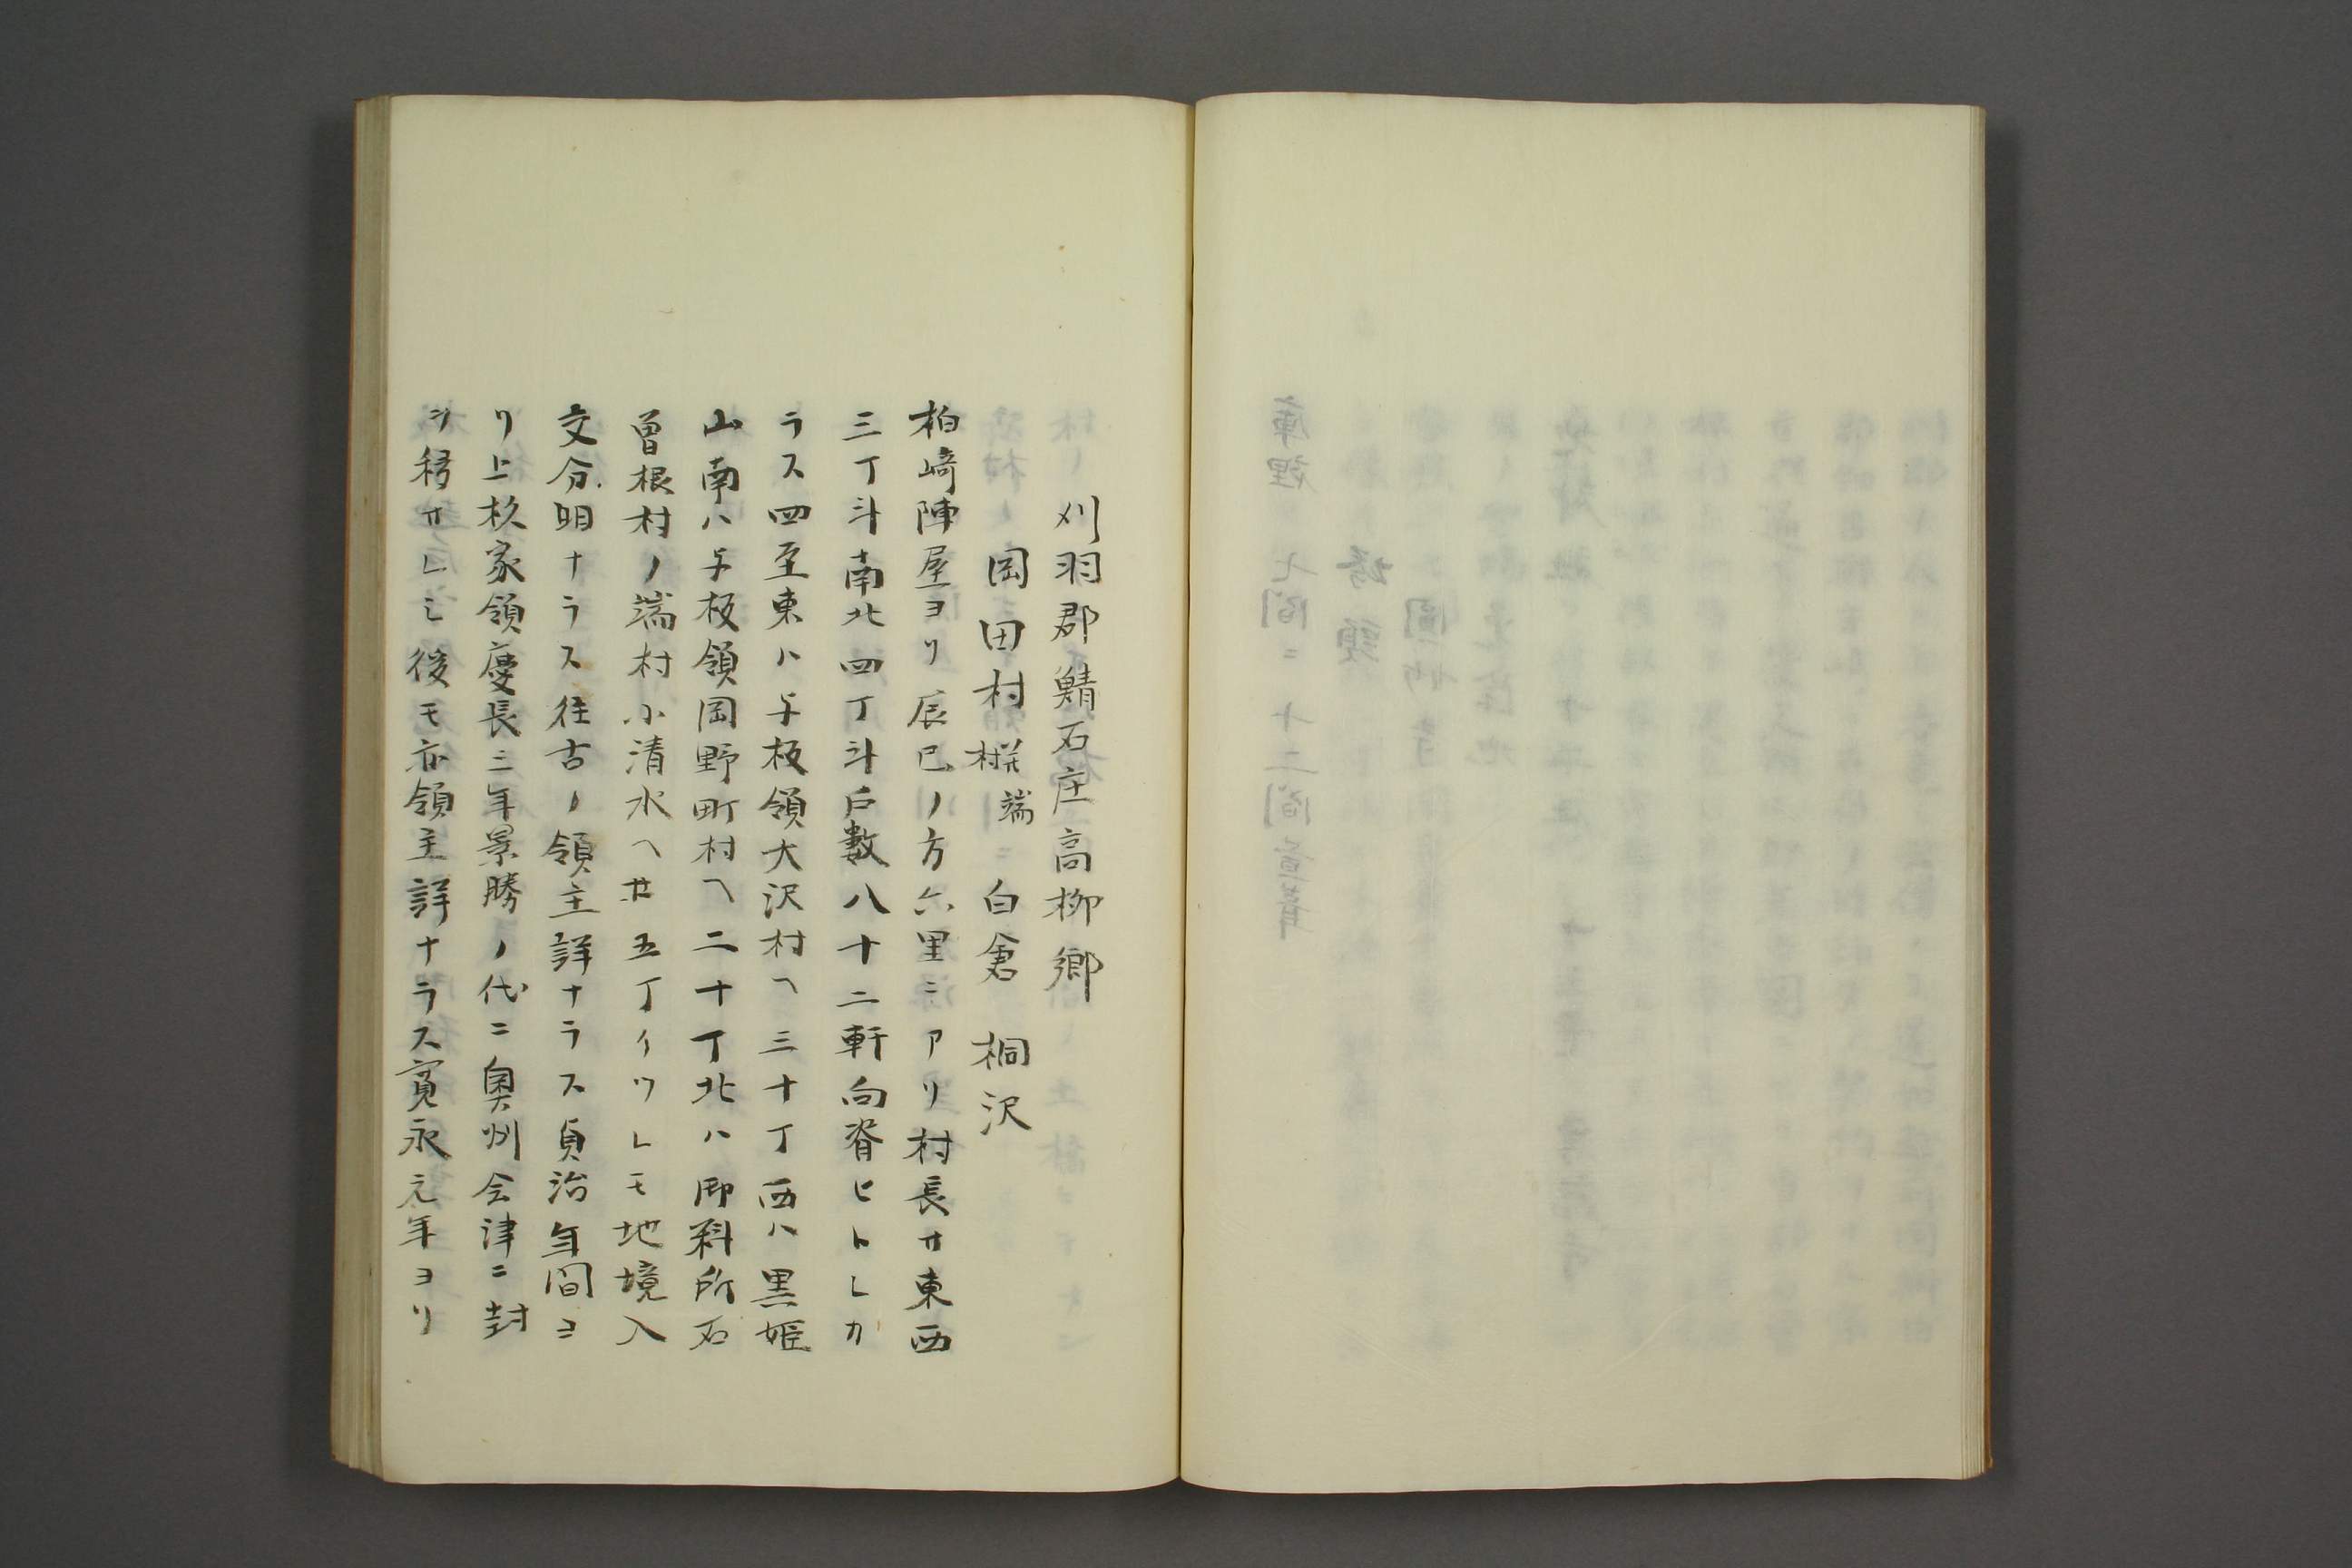 刈羽郡鯖石庄高柳郷
岡田村 端村 白倉 桐沢
柏崎陣屋ヨリ辰巳ノ方六里ニアリ村長サ東西
三丁斗南北四丁斗戸数八十二軒向背ヒトシカ
ラス四至東ハ与板領大沢村ヘ三十丁西ハ黒姫
山南ハ与板領岡野町村ヘ二十丁北ハ御料所石
曽根村ノ端村小清水ヘ廿五丁イツレモ地境入
交分明ナラス往古ノ領主詳ナラス貞治年間ヨ
リ上杦家領慶長三年景勝ノ代ニ奥州会津ニ封
ヲ移サレシ後モ亦領主詳ナラス寛永元年ヨリ